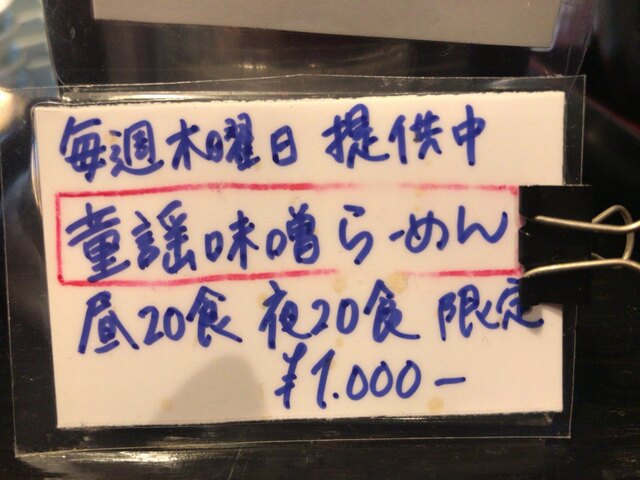 毎週木曜日 提供中
童謡味噌らーめん
昼20食 夜20食 限定
¥1.000-